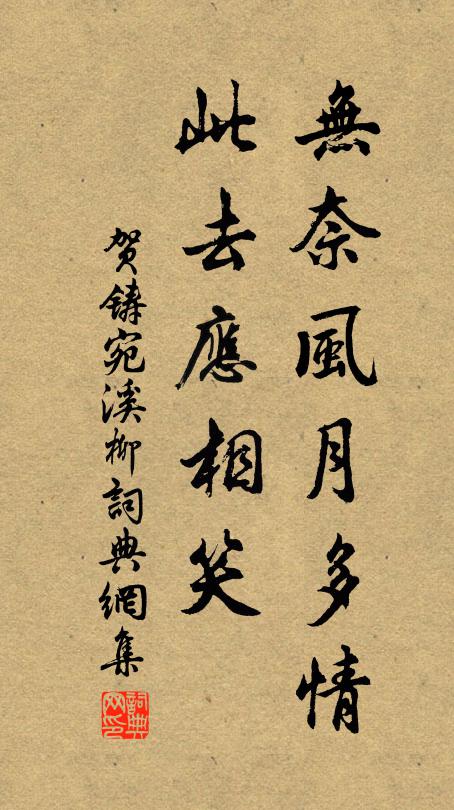 無奈風月多情
此去應相笑
贺鑄宛溪柳詞典網集
詞典
网印